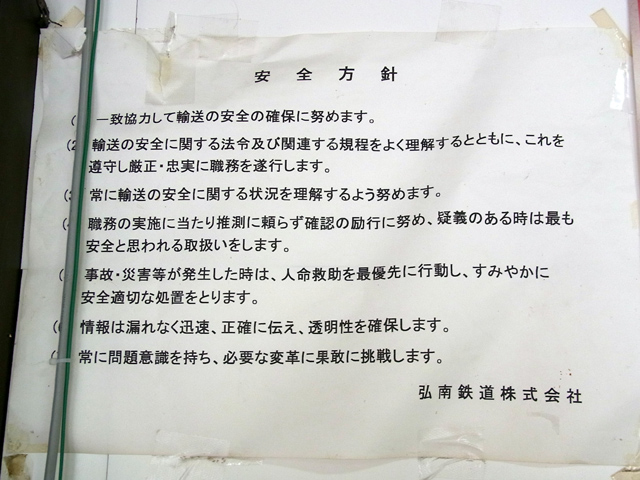 安全方針
一致協力して輸送の安全の確保に努めます。
(2 輸送の安全に関する法令及び関連する規程をよく理解するとともに、これを
遵守し厳正・忠実に職務を遂行します。
(3 常に輸送の安全に関する状況を理解するよう努めます。
(4 職務の実施に当たり推測に頼らず確認の励行に努め、疑義のある時は最も
安全と思われる取扱いをします。
( 事故・災害等が発生した時は、人命救助を最優先に行動し、すみやかに
安全適切な処置をとります。
(6 情報は漏れなく迅速、正確に伝え、透明性を確保します。
( 常に問題意識を持ち、必要な変革に果敢に挑戦します。
弘南鉄道株式会社